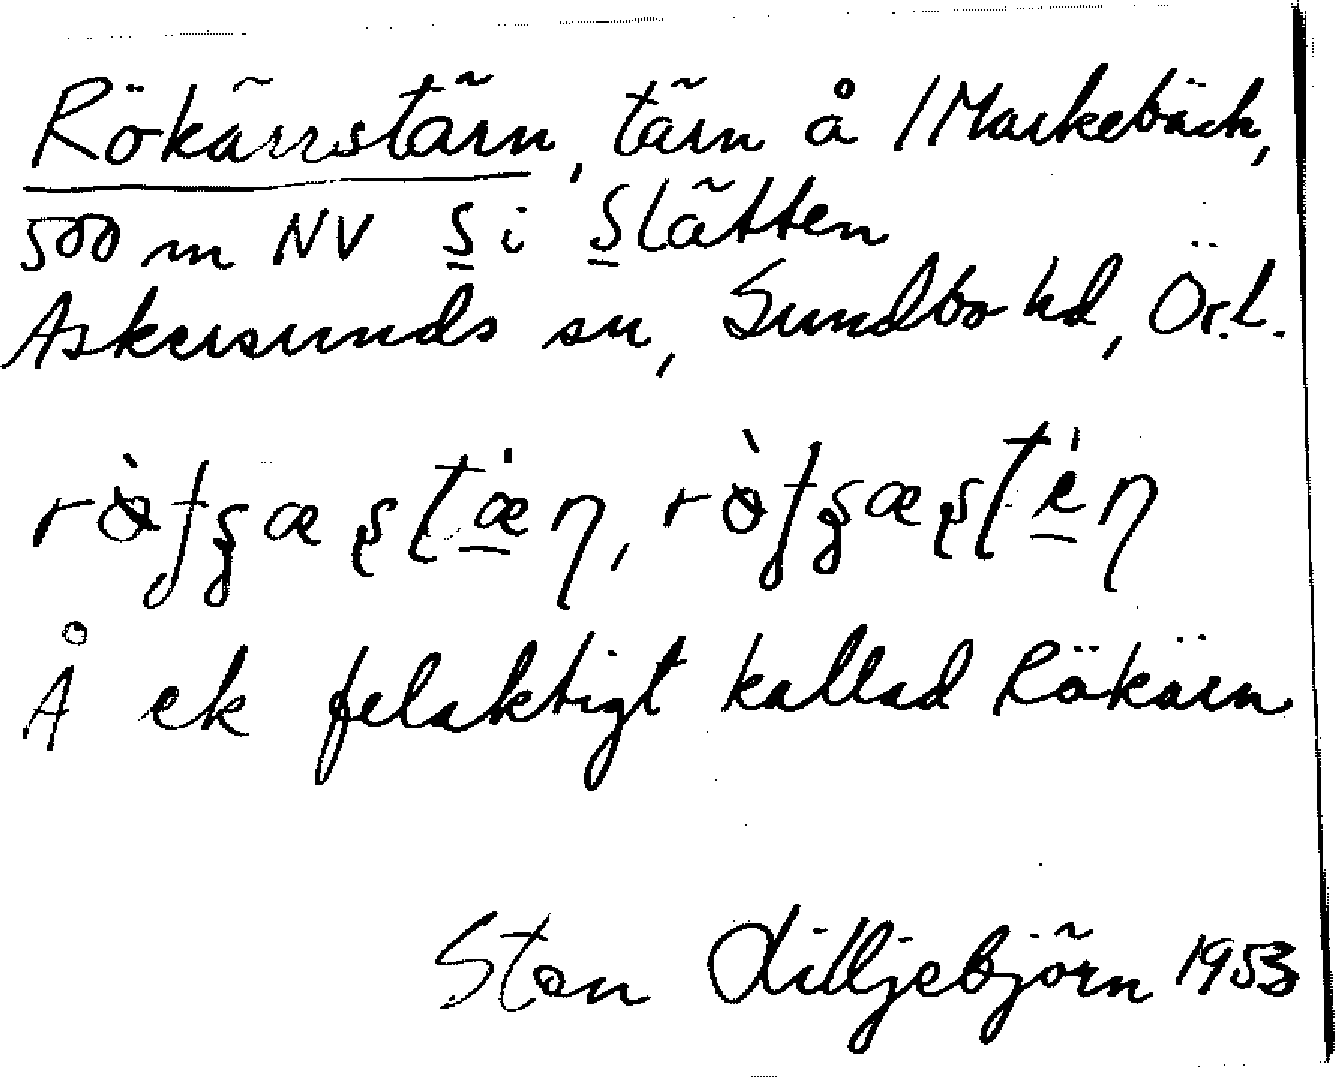 Rökärrstärn, tärn å 1 Markebäck,
500 m NV S i Slätten
Askersunds sn, Sundbo hd, Ör.l.
Å ek felaktigt kallad Rökärn
Sten Lilljebjörn 1953